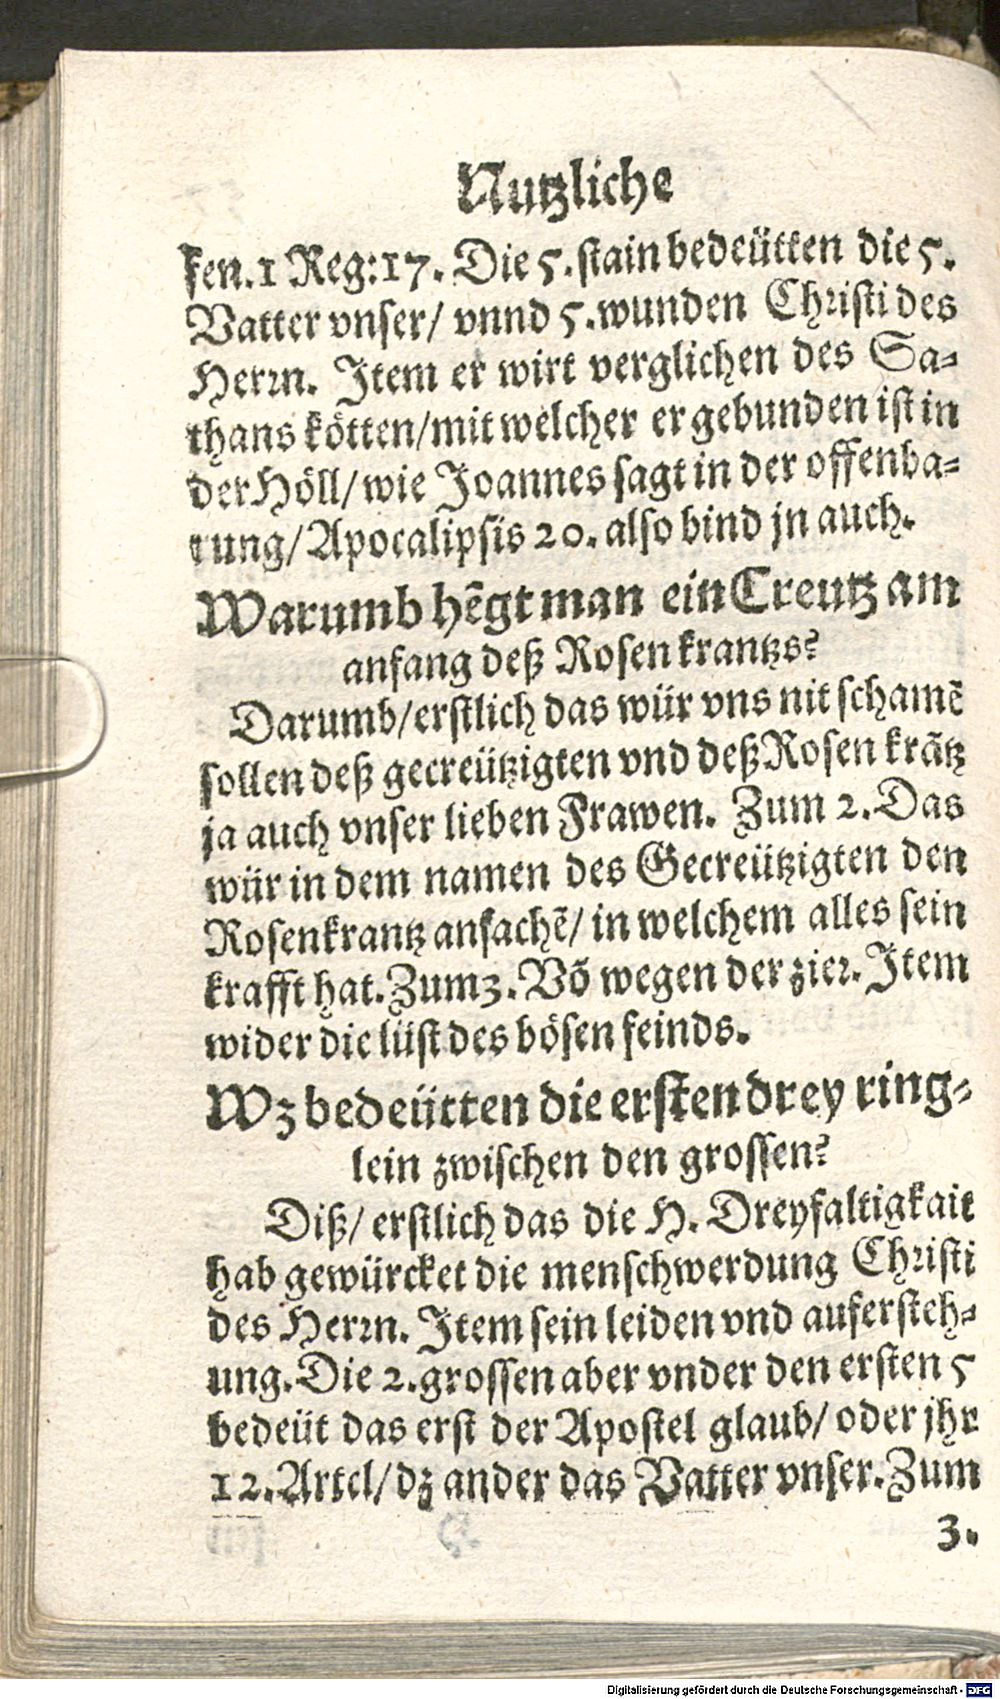 Nutzliche
ken. 1 Reg: 17. Die 5. stain bedeütten die 5.
Vatter vnser/ vnnd 5. wunden Christi des
Herrn. Item er wirt verglichen des Sa-
thans kötten/ mit welcher er gebunden ist in
der Höll/ wie Joannes sagt in der offenba-
rung/ Apocalipsis 20. also bind jn auch.
Warumb hẽgt man ein Creutz am
anfang deß Rosenkrantzs?
Darumb/ erstlich das wür vns nit schamẽ
sollen deß gecreützigten vnd deß Rosenkrãtz
ja auch vnser lieben Frawen. Zum 2. Das
wür in dem namen des Gecreützigten den
Rosenkrantz anfachẽ/ in welchem alles sein
krafft hat. Zum 3. Võ wegen der zier. Item
wider die lüst des bösen feinds.
Wz bedeütten die ersten drey ring-
lein zwischen den grossen?
Diß/ erstlich das die H. Dreyfaltigkait
hab gewürcket die menschwerdung Christi
des Herrn. Item sein leiden vnd aufersteh-
ung. Die 2. grossen aber vnder den ersten 5
bedeüt das erst der Apostel glaub/ oder jhr
12. Artcl/ dz ander das Vatter vnser. Zum
3.
Digitalisierung gefördert durch die Deutsche Forschungsgemeinschaft - DFG